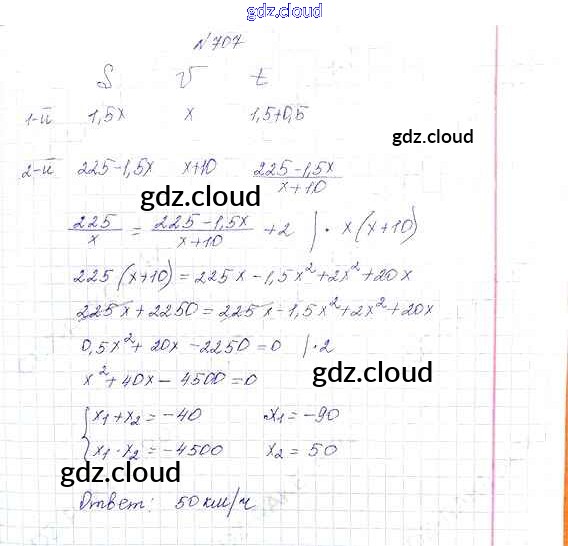 gdz.cloud
№707
S v t
1-й 1,5x x 1,5+0,5
gdz.cloud
2-й 225-1,5x x+10 (225-1,5x)/(x+10)
gdz.cloud
225/x = (225-1,5x)/(x+10) +2 | · x(x+10)
225(x+10)=225x-1,5x²+2x²+20x
225x+2250=225x-1,5x²+2x²+20x
0,5x²+20x-2250=0 |·2
x²+40x-4500=0
gdz.cloud
{x₁+x₂=-40 x₁=-90
x₁·x₂=-4500 x₂=50
gdz.cloud
Ответ: 50 км/ч